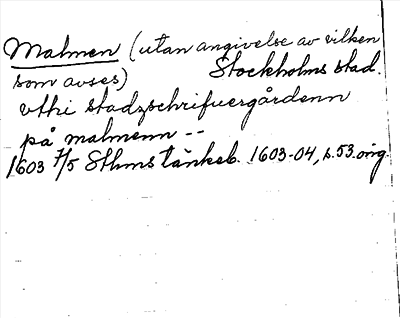 Malmen (utan angivelse av vilken
som avses) Stockholms stad.
vthi stadzschrifuergårdenn
på malmenn --
1603 7/5 Sthms tänkeb. 1603-04, s. 53. orig.